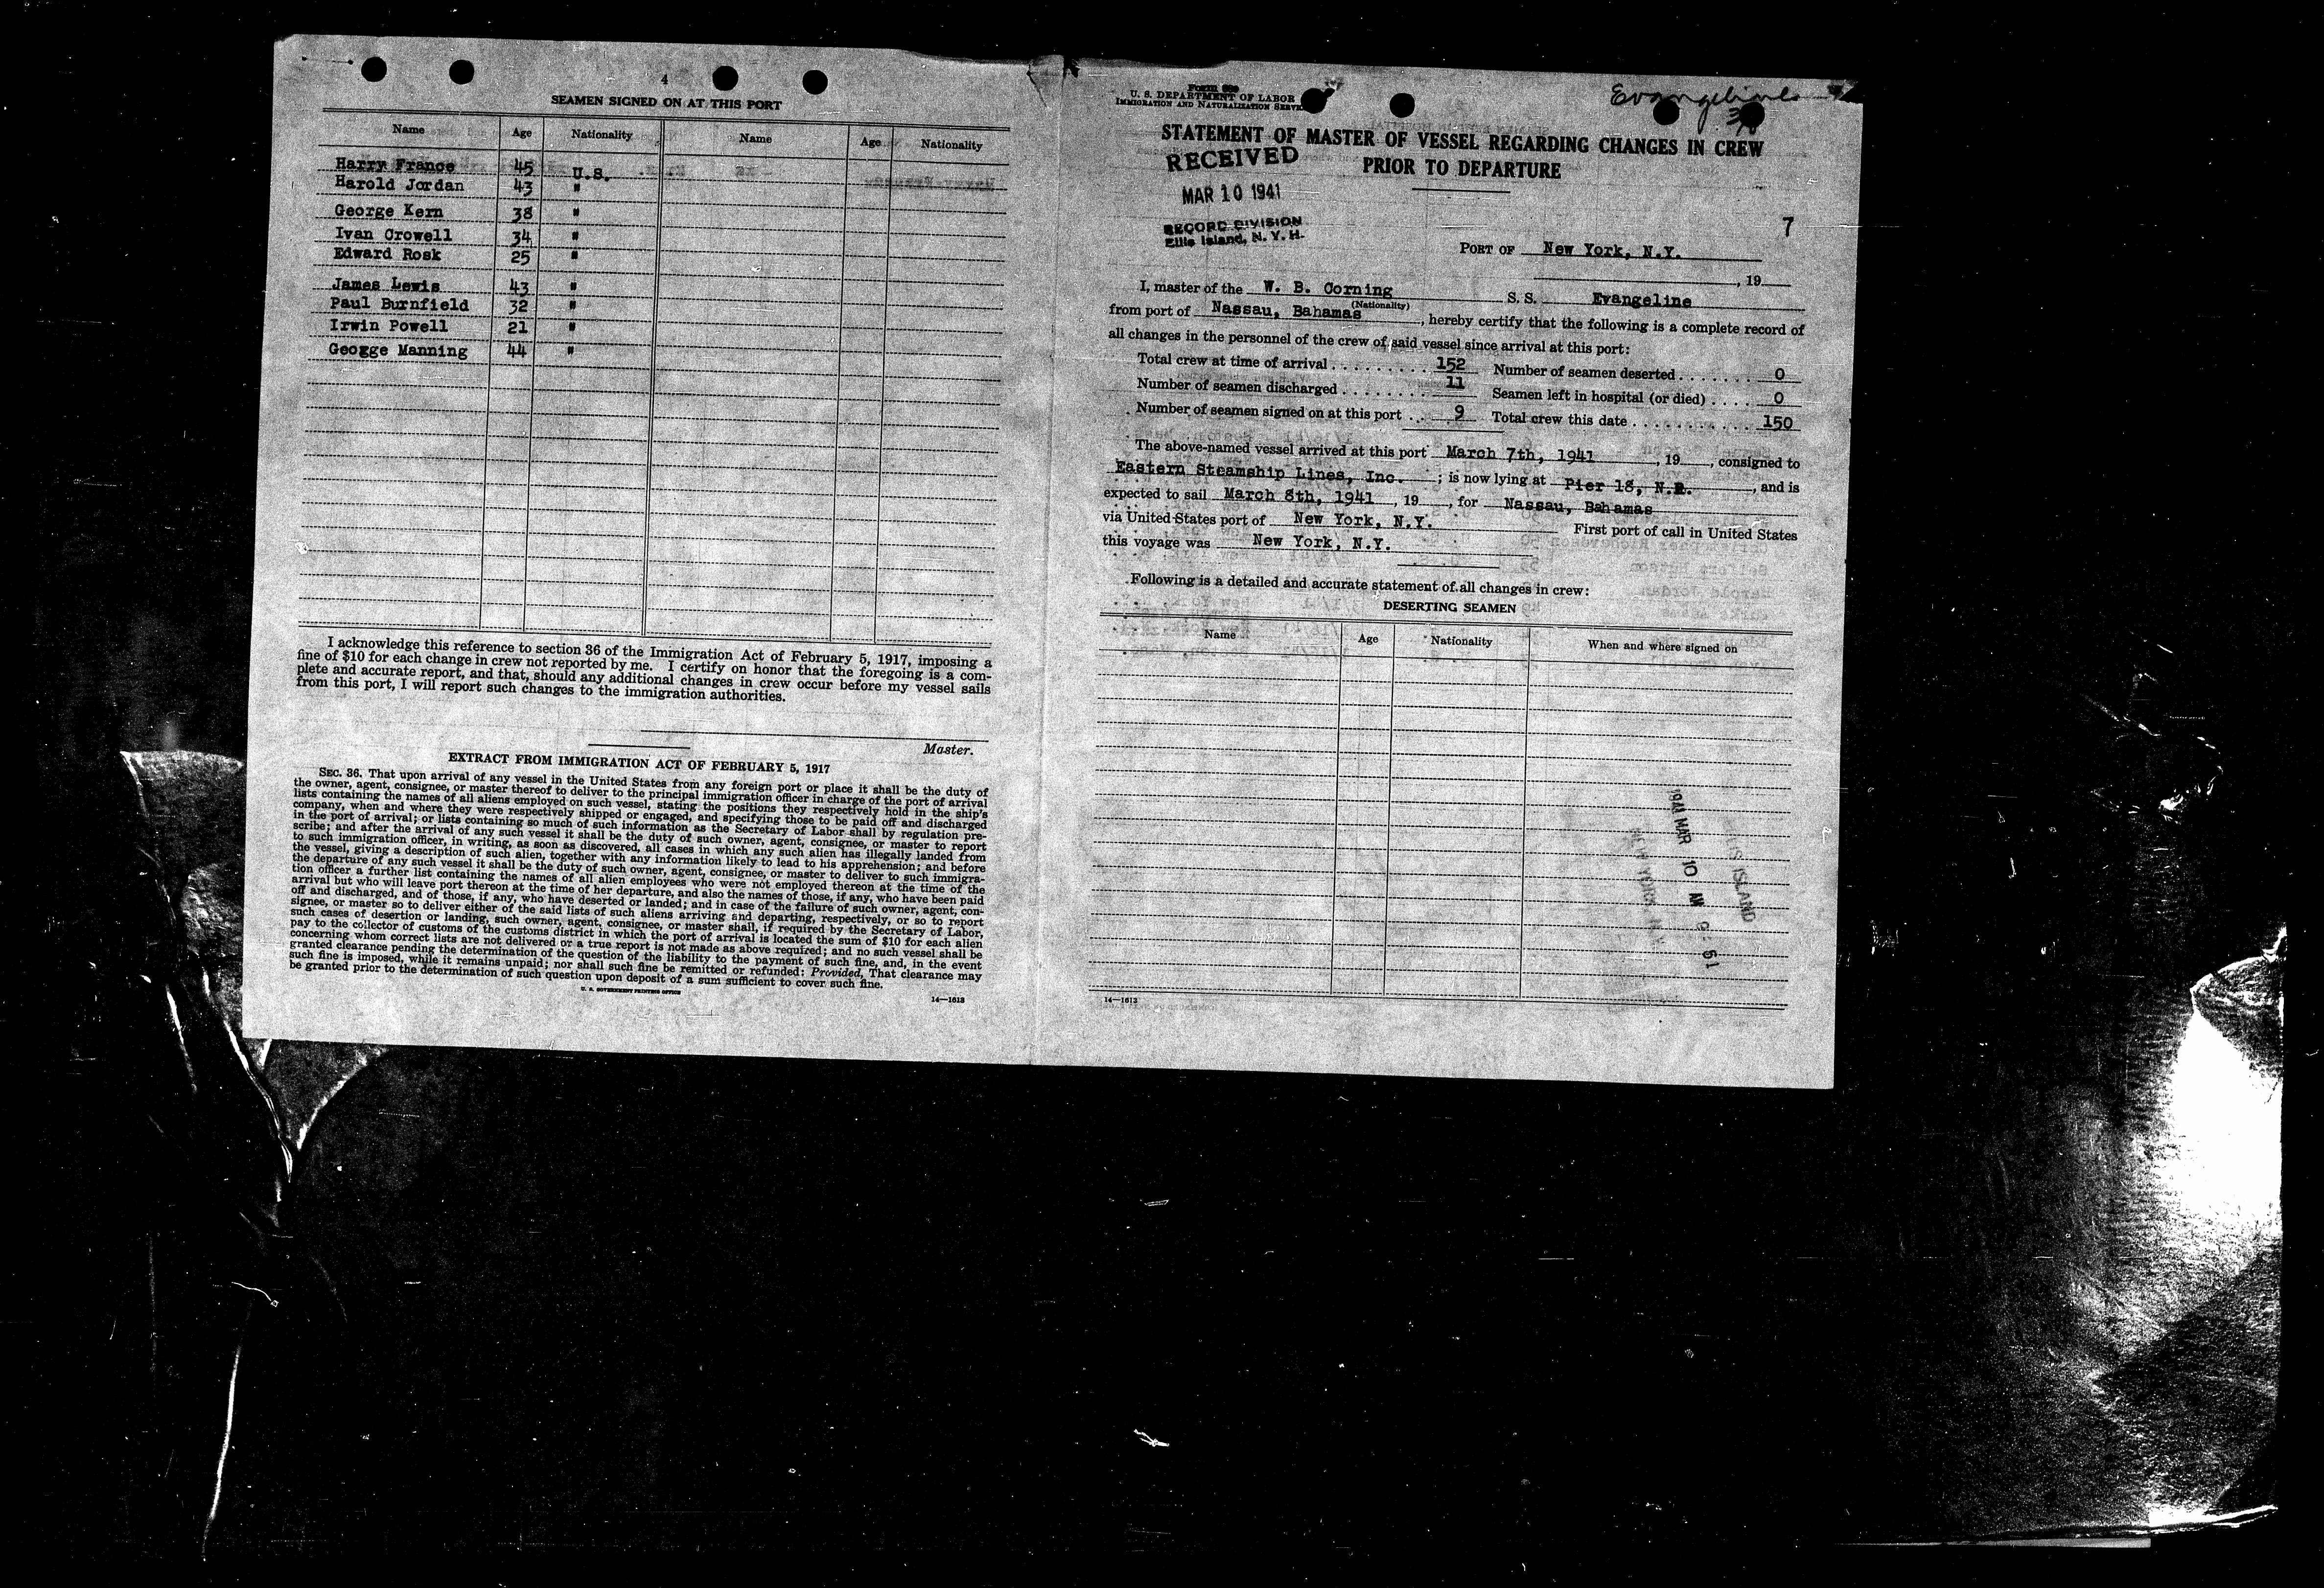 4
SEAMEN SIGNED ON AT THIS PORT
Name Age Nationality Name Age Nationality
Harry France 45 U.S.
Harold Jordan 43 "
George Kern 38 "
Ivan Crowell 34 "
Edward Rosk 25 "
James Lewis 43 "
Paul Burnfield 32 "
Irwin Powell 21 "
Geogge Manning 44 "
I acknowledge this reference to section 36 of the Immigration Act of February 5, 1917, imposing a
fine of $10 for each change in crew not reported by me. I certify on honor that the foregoing is a com-
plete and accurate report, and that, should any additional changes in crew occur before my vessel sails
from this port, I will report such changes to the immigration authorities.
Master.
EXTRACT FROM IMMIGRATION ACT OF FEBRUARY 5, 1917
SEC. 36. That upon arrival of any vessel in the United States from any foreign port or place it shall be the duty of
the owner, agent, consignee, or master thereof to deliver to the principal immigration officer in charge of the port of arrival
lists containing the names of all aliens employed on such vessel, stating the positions they respectively hold in the ship's
company, when and where they were respectively shipped or engaged, and specifying those to be paid off and discharged
in the port of arrival; or lists containing so much of such information as the Secretary of Labor shall by regulation pre-
scribe; and after the arrival of any such vessel it shall be the duty of such owner, agent, consignee, or master to report
to such immigration officer, in writing, as soon as discovered, all cases in which any such alien has illegally landed from
the vessel, giving a description of such alien, together with any information likely to lead to his apprehension; and before
the departure of any such vessel it shall be the duty of such owner, agent, consignee, or master to deliver to such immigra-
tion officer a further list containing the names of all alien employees who were not employed thereon at the time of the
arrival but who will leave port thereon at the time of her departure, and also the names of those, if any, who have been paid
off and discharged, and of those, if any, who have deserted or landed; and in case of the failure of such owner, agent, con-
signee, or master so to deliver either of the said lists of such aliens arriving and departing, respectively, or so to report
such cases of desertion or landing, such owner, agent, consignee, or master shall, if required by the Secretary of Labor,
pay to the collector of customs of the customs district in which the port of arrival is located the sum of $10 for each alien
concerning whom correct lists are not delivered or a true report is not made as above required; and no such vessel shall be
granted clearance pending the determination of the question of the liability to the payment of such fine, and, in the event
such fine is imposed, while it remains unpaid; nor shall such fine be remitted or refunded: Provided, That clearance may
be granted prior to the determination of such question upon deposit of a sum sufficient to cover such fine.
U. S. GOVERNMENT PRINTING OFFICE
14—1613
Form 689
U. S. DEPARTMENT OF LABOR
IMMIGRATION AND NATURALIZATION SERVI
Evangeline
STATEMENT OF MASTER OF VESSEL REGARDING CHANGES IN CREW
PRIOR TO DEPARTURE
RECEIVED
MAR 10 1941
RECORD DIVISION
Ellis Island, N. Y. H.
7
PORT OF New York, N.Y.
, 19
I, master of the W. B. Corning S. S. Evangeline
(Nationality)
from port of Nassau, Bahamas, hereby certify that the following is a complete record of
all changes in the personnel of the crew of said vessel since arrival at this port:
Total crew at time of arrival . . . . . . . . . . 152 Number of seamen deserted . . . . . . . 0
Number of seamen discharged . . . . . . . . . 11 Seamen left in hospital (or died) . . . . 0
Number of seamen signed on at this port . . 9 Total crew this date . . . . . . . . . . . 150
The above-named vessel arrived at this port March 7th, 1941, 19, consigned to
Eastern Steamship Lines, Inc. ; is now lying at Pier 18, N.R., and is
expected to sail March 8th, 1941, 19, for Nassau, Bahamas
via United States port of New York, N.Y. First port of call in United States
this voyage was New York, N.Y.
Following is a detailed and accurate statement of all changes in crew:
DESERTING SEAMEN
Name Age Nationality When and where signed on
1941 MAR 10 AM 9:51
14—1613